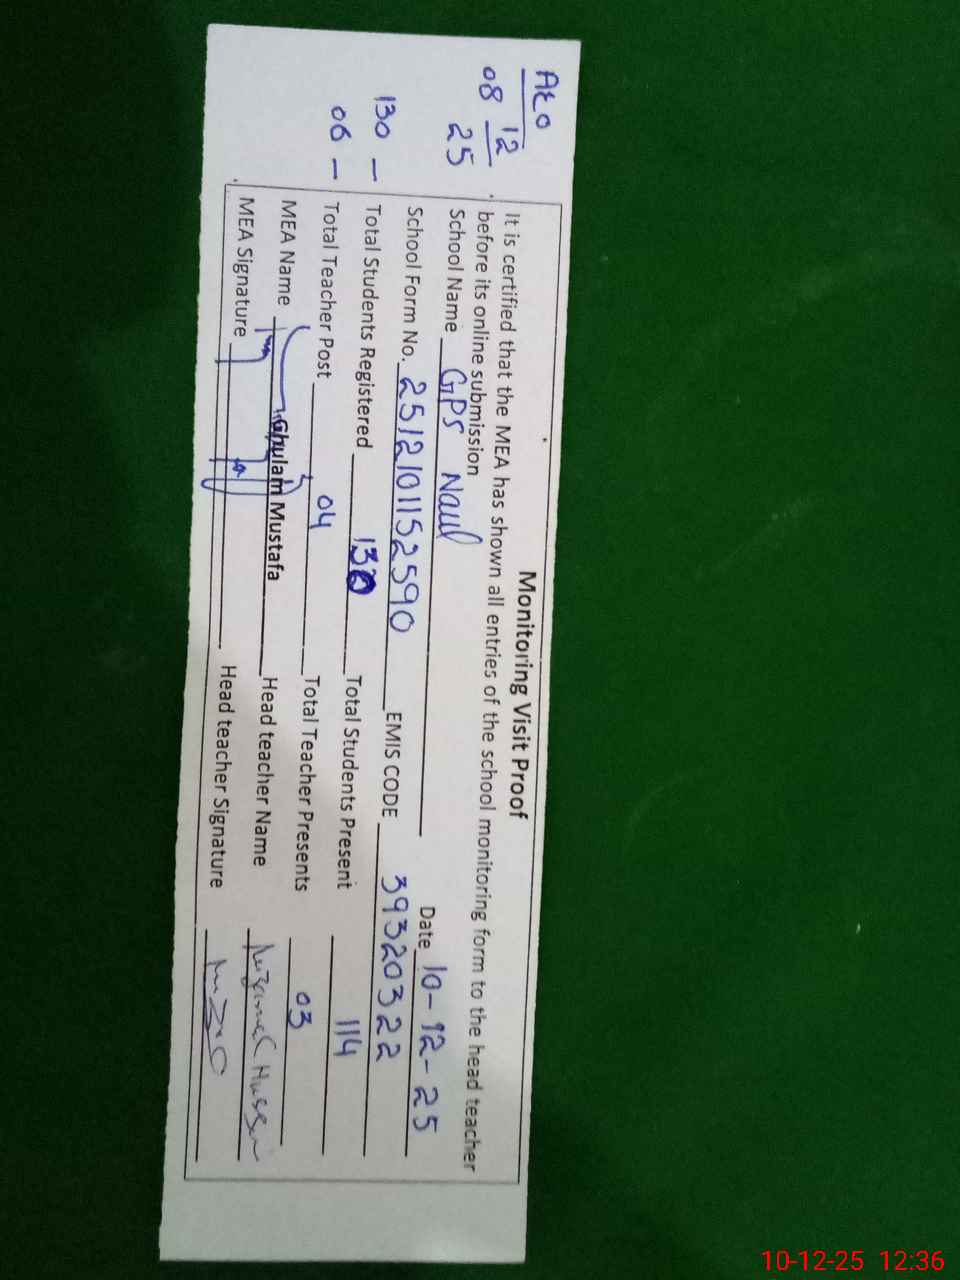 AEO
08 12
25
130 -
06 -
Monitoring Visit Proof
It is certified that the MEA has shown all entries of the school monitoring form to the head teacher
before its online submission
School Name GPS Naul Date 10-12-25
School Form No. 2512101152590 EMIS CODE 39320322
Total Students Registered 130 Total Students Present 114
Total Teacher Post 04 Total Teacher Presents 03
MEA Name Ghulam Mustafa Head teacher Name
MEA Signature Head teacher Signature
10-12-25 12:36